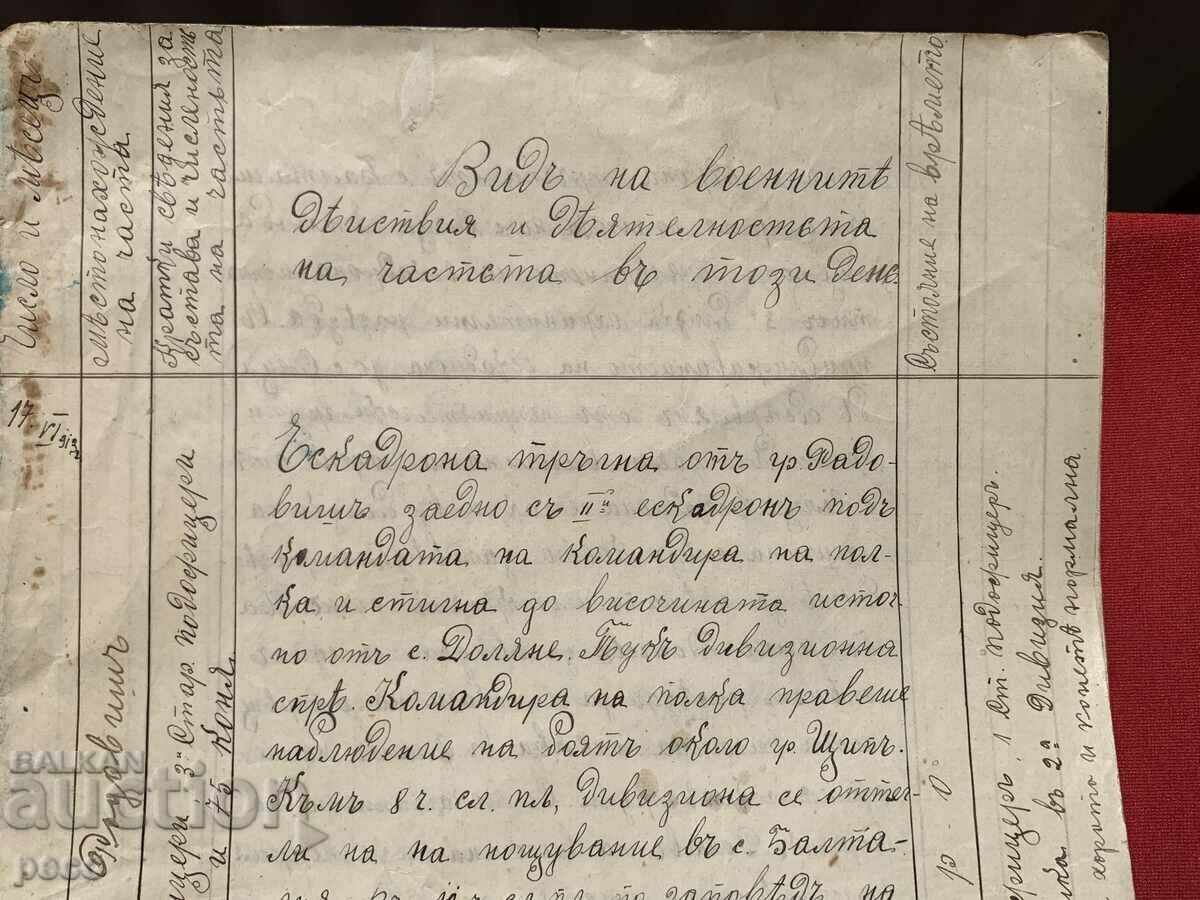 Число и мѣсецъ
Мѣстонахождение
на частта
Кратки сведения за
състава и численостъ
та на частьта
Видъ на военнитѣ
дѣиствия и дѣятелностьта
на частьта въ този день.
Състояние на врѣмето
17 VI 913
Радовишъ
3 Стар. подофицери
и 75 коня.
Ескадрона тръгна отъ гр. Радо-
вишъ заедно съ II й ескадронъ подъ
командата на командира на пол-
ка и стигна до височината источ-
но отъ с. Доляне. Тукъ дивизионна
спрѣ. Командира на полка правеше
наблюдение на боятъ около гр. Щипъ.
Към 8 ч. сл. пл, дивизиона се оттег-
ли на на нощувание въ с. Балта-
заповѣдь на
1 Ст. подофицеръ.
въ 2а Дивизия.
хората и конетѣ нормална
BALKAN
auction
peco